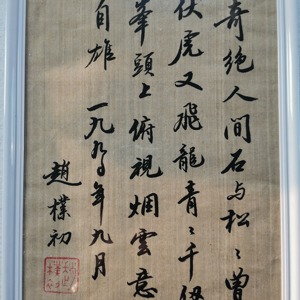 奇绝人间石与松〻曾
伏虎又飛龍青〻千仞
峯頭上俯視烟雲意
自雄
一九九〇年九月
趙樸初